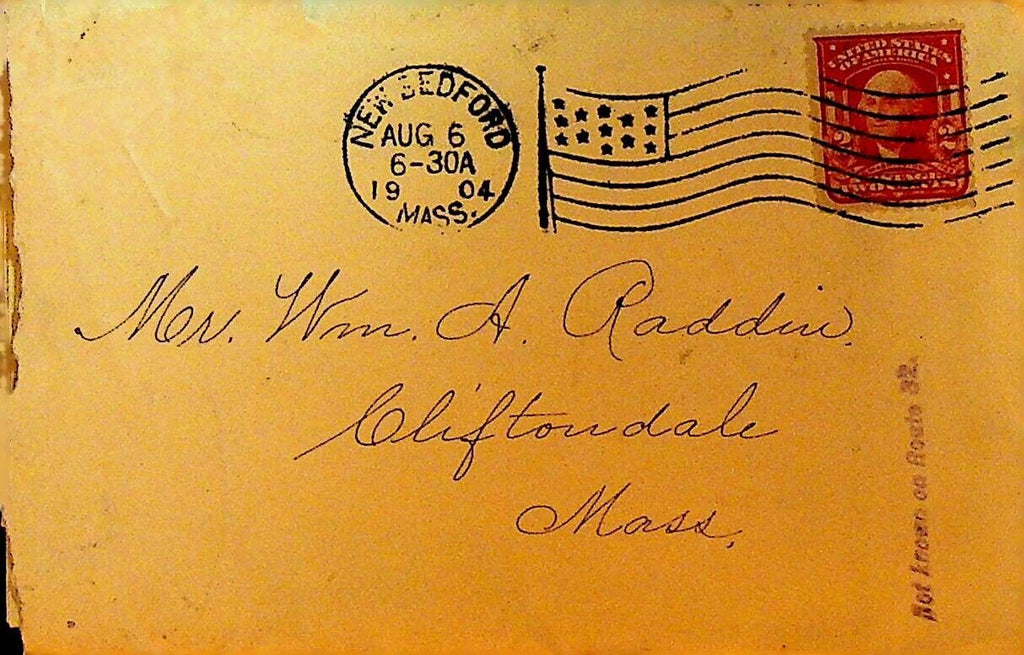 NEW BEDFORD
AUG 6
6-30A
19 04
MASS.
UNITED STATES
OF AMERICA
2 2
TWO CENTS
Mr. Wm. A. Raddin,
Cliftondale
Mass.
Not known on Route 32.